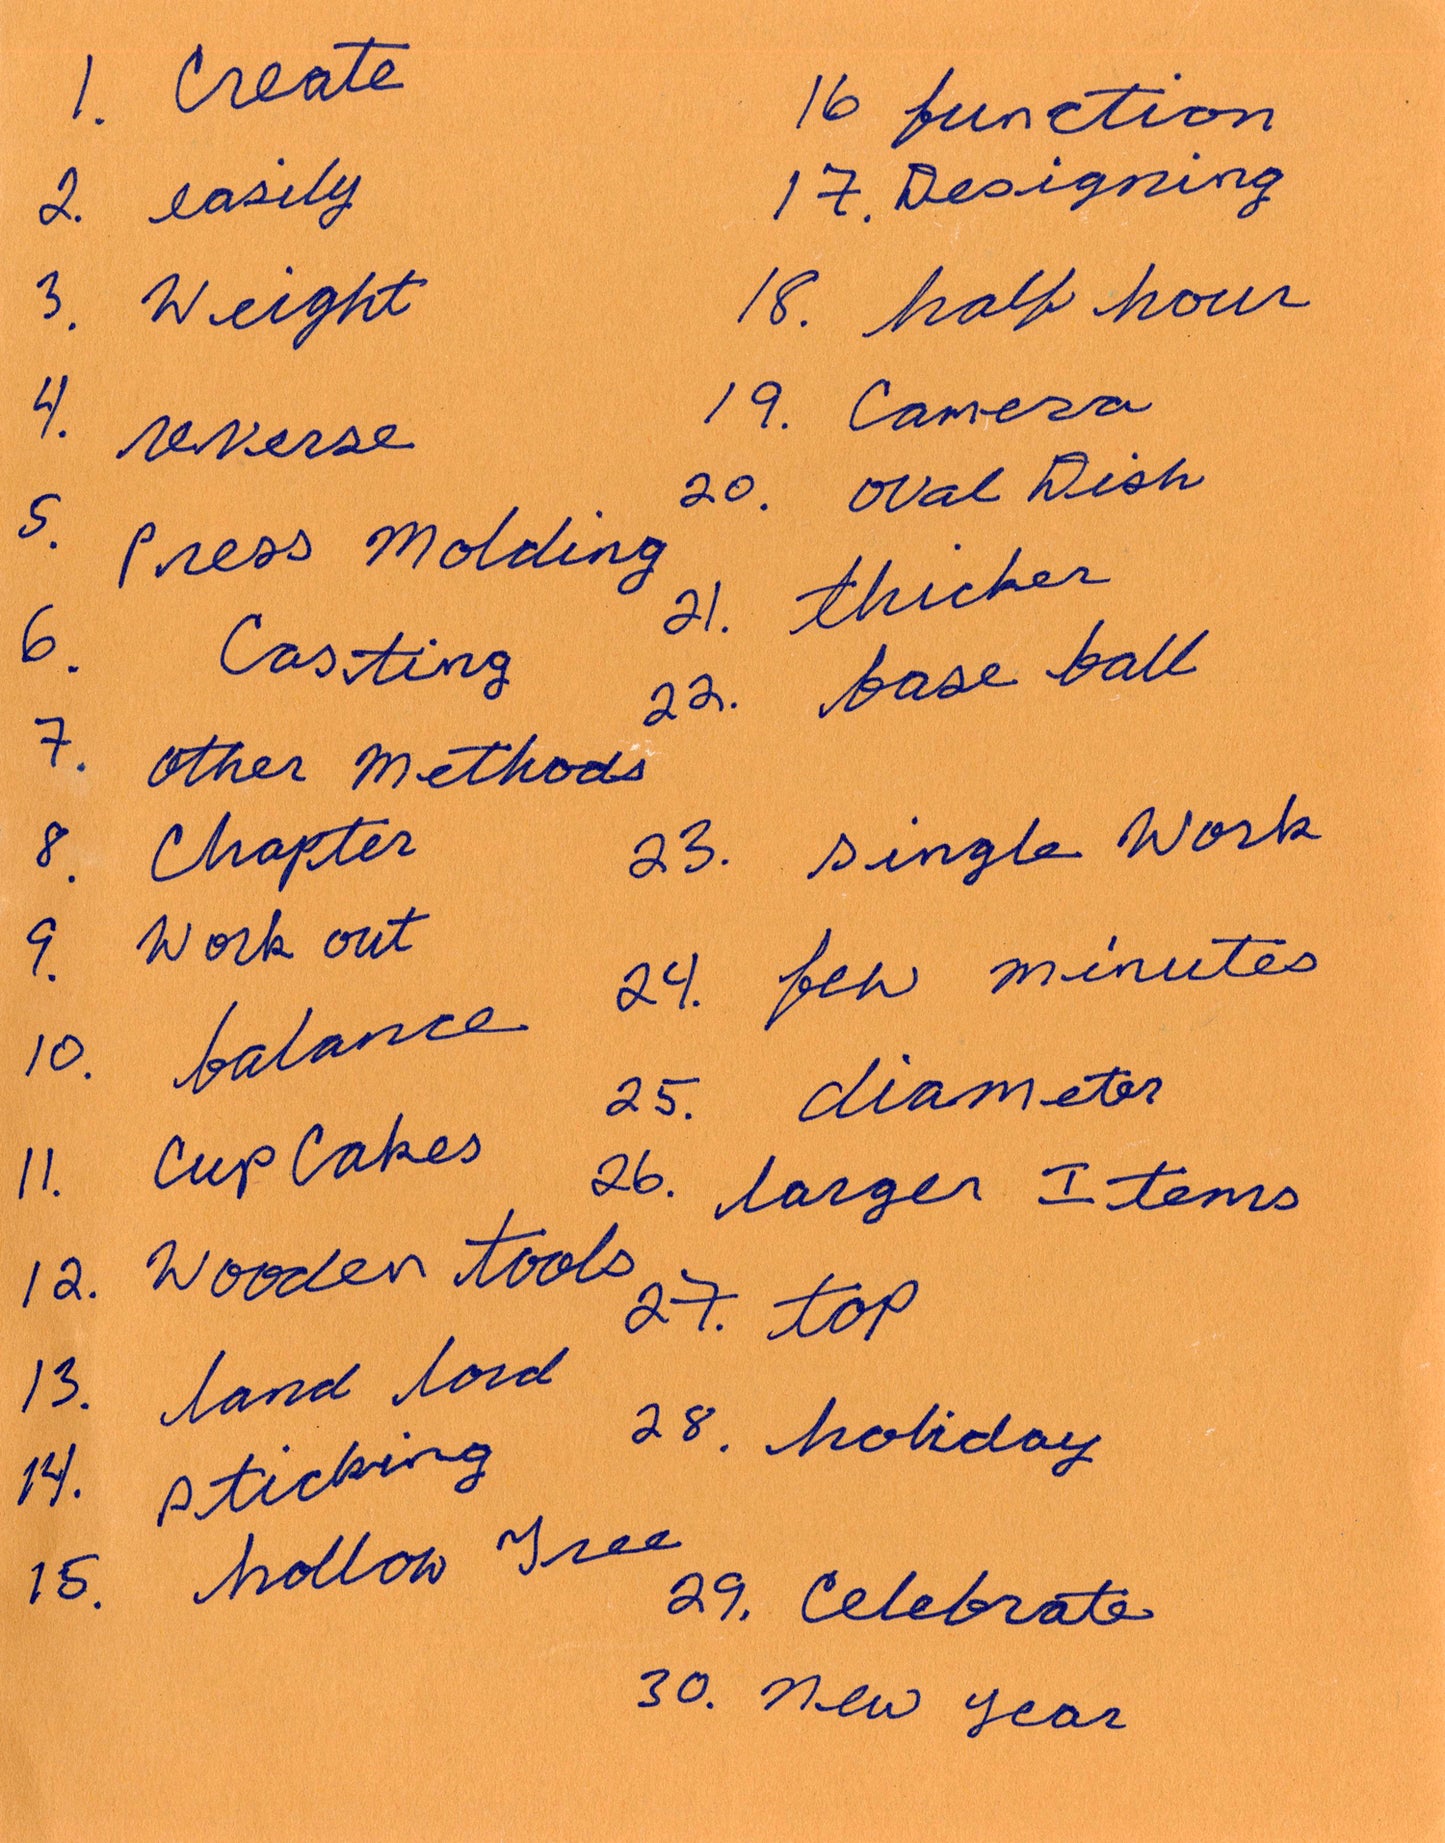 1. Create
2. easily
3. Weight
4. reverse
5. Press Molding
6. Casting
7. other Methods
8. Chapter
9. Work out
10. balance
11. Cup Cakes
12. Wooden tools
13. land lord
14. sticking
15. hollow Tree
16 function
17. Designing
18. half hour
19. Camera
20. oval Dish
21. thicker
22. base ball
23. single Work
24. few minutes
25. diameter
26. larger Items
27. top
28. holiday
29. Celebrate
30. New year